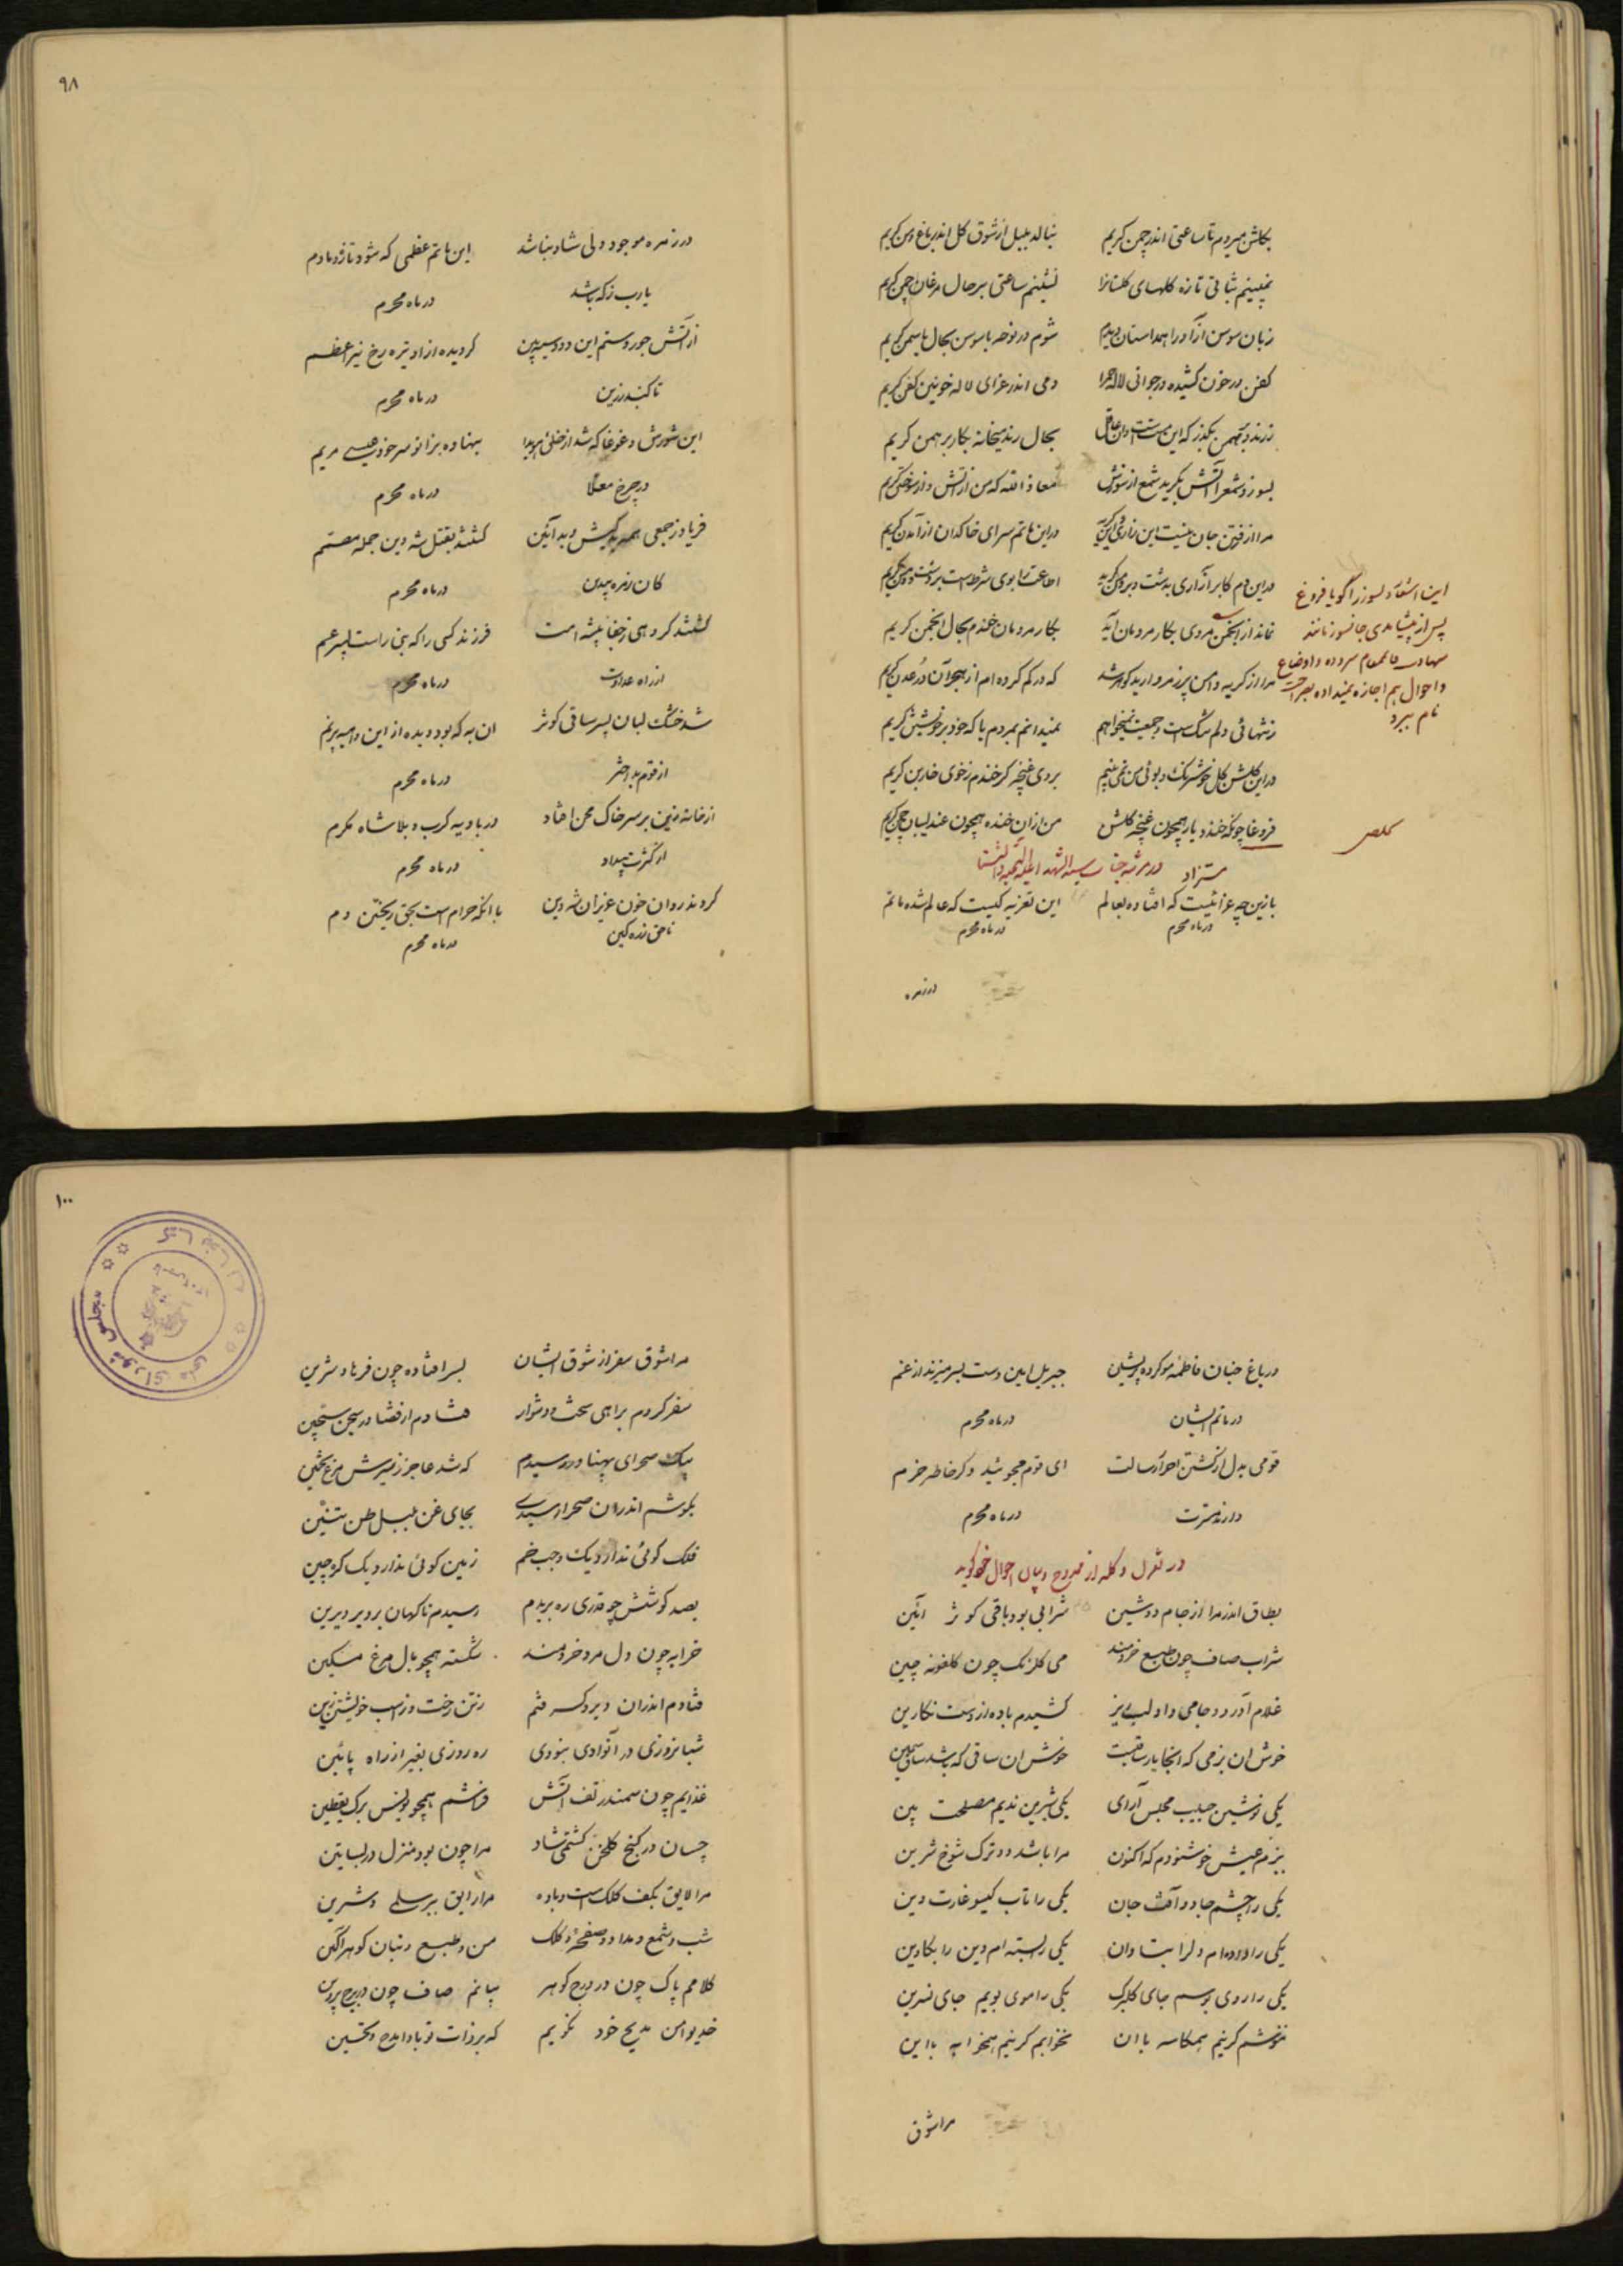 بگلشن میروم تا ساعتی اندر چمن گریم بنالد بلبل از شوق گل اندر باغ و من گریم
نشینم ساعتی بر حال مرغان چمن گریم
زبان سوسن آزاد را همداستان دیدم شوم در نوحه با سوسن بحال یاسمن گریم
کفن در خون کشیده در جوانی لاله حمرا دمی اندر عزای لاله خونین کفن گریم
بحال رند میخانه بکار برهمن گریم
بسوزد شمع را آتش بگرید شمع از سوزش معاذ الله که من از آتش و از سوختن گریم
مرا از فرقت جان نیست این زاری و این گریه در این ماتم سرای خاکدان از آمدن گریم
بکار مردمان خندم بحال انجمن گریم
که در کم کرده ام از هجر آن در عدن گریم
ز تنهائی دلم تنگ است و جمعیت نمیخواهم نمیدانم بمردم یا که خود بر خویشتن گریم
در این گلشن گل خوشرنگ و بوئی من نمی بینم بروی غنچه گر خندم ز خوی خار بن گریم
فروغا چونکه خندد یار همچون غنچه گلشن من از آن خنده همچون عندلیبان چمن گریم
این اشعار دلسوز را گویا فروغ
پس از پیشامدی جانسوز مانند
و احوال هم اجازه نمیداده بصراحت
نام ببرد
مستزاد در مرثیه جناب سید الشهدا علیه التحیه و الثنا
باز این چه عزائیست که افتاده بعالم این تعزیه کیست که عالم شده ماتم
در ماه محرم در ماه محرم
در زمره
۹۸
در زمره موجود دلی شاد نباشد این ماتم عظمی که شود تازه دمادم
یا رب ز که باشد در ماه محرم
از آتش جور و ستم این دود سیه بین گردیده از او تیره رخ نیر اعظم
تا گنبد زرین در ماه محرم
این شورش و غوغا که شد از خلق هویدا بنهاده بزانو سر خود عیسی مریم
در چرخ معلا در ماه محرم
فریاد ز جمعی همه بد کیش و بد آئین گشتند بقتل شه دین جمله مصمم
کان زمره بیدین در ماه محرم
کشتند گروهی ز جفا پیشه امت فرزند کسی را که نبی راست پسر عم
از راه عداوت در ماه محرم
شد خشک لبان پسر ساقی کوثر ان به که بود دیده از این واهیه پر نم
از قوم بد اختر در ماه محرم
از خانه زین بر سر خاک محن افتاد در بادیه کرب و بلا شاه مکرم
از کثرت بیداد در ماه محرم
کردند روان خون عزیزان شه دین با انکه حرام است بحق ریختن دم
ناحق زده کین در ماه محرم
در باغ جنان فاطمه مو کرده پریشان جبریل امین دست بسر میزند از غم
در ماتم ایشان در ماه محرم
قومی بدل از کشتن احرار رسالت ای قوم مجوئید دگر خاطر خرم
دارند مسرت در ماه محرم
در تغزل و گله از ممدوح و بیان احوال خود گوید
بطاق اندر مرا از جام دوشین شرابی بود باقی کوثر آئین
شراب صاف چون طبع خردمند می گلرنگ چون گلغونه چین
غلام آورد و جامی داد لبریز کشیدم باده از دست نگارین
خوش ان بزمی که انجا یار ساقیست خوش ان ساقی که باشد ساق سیمین
یکی نوشین حبیب مجلس آرای یکی شیرین ندیم مصلحت بین
بزم عیش خوشنودم که اکنون مرا باشد دو ترک شوخ شیرین
یکی را چشم جادو آفت جان یکی را تاب گیسو غارت دین
یکی را داده ام دل را بتاوان یکی را بسته ام دین را بکابین
یکی را روی بوسم جای گلبرگ یکی را موی بویم جای نسرین
ننوشم گر نیم همکاسه با ان نخوابم گر نیم همخوابه با این
مرا شوق
۱۰۰
مرا شوق سفر از شوق ایشان بسر افتاده چون فرهاد شیرین
سفر کردم براهی سخت و دشوار فتادم از قضا در سجن سجین
بیک صحرای پهناور رسیدم که شد عاجز ز سیرش مرغ تخمین
بگوشم اندر ان صحرا رسیدی بجای غن بلبل طن تنین
فلک گوئی ندارد یک وجب خم زمین گوئی ندارد یک گره چین
بصد کوشش چو قدری ره بریدم رسیدم ناگهان بر دیر دیرین
خرابه چون دل مرد خردمند شکسته همچو بال مرغ مسکین
فتادم اندر ان دیر و گسرفتم ز تن رخت و ز اسب خویشتن زین
شبانروزی در آنوادی نبودی ره روزی بغیر از راه پائین
غذایم چون سمندر تف آتش فراشم همچو یونس برگ یقطین
چسان در کنج گلخن گشتمی شاد مرا چون بود منزل در بساتین
مرا لایق بکف کلک است و باده مرا رایق ببر سلمی و شیرین
شب و شمع و مداد و صفحه و کلک من و طبع و بنان گوهر آگین
کلامم پاک چون در درج گوهر بیانم صاف چون در برج پروین
خدیوا من مدیح خود نگویم که بر ذات تو بادا مدح و تحسین
کتابخانه
مجلس شورای ملی